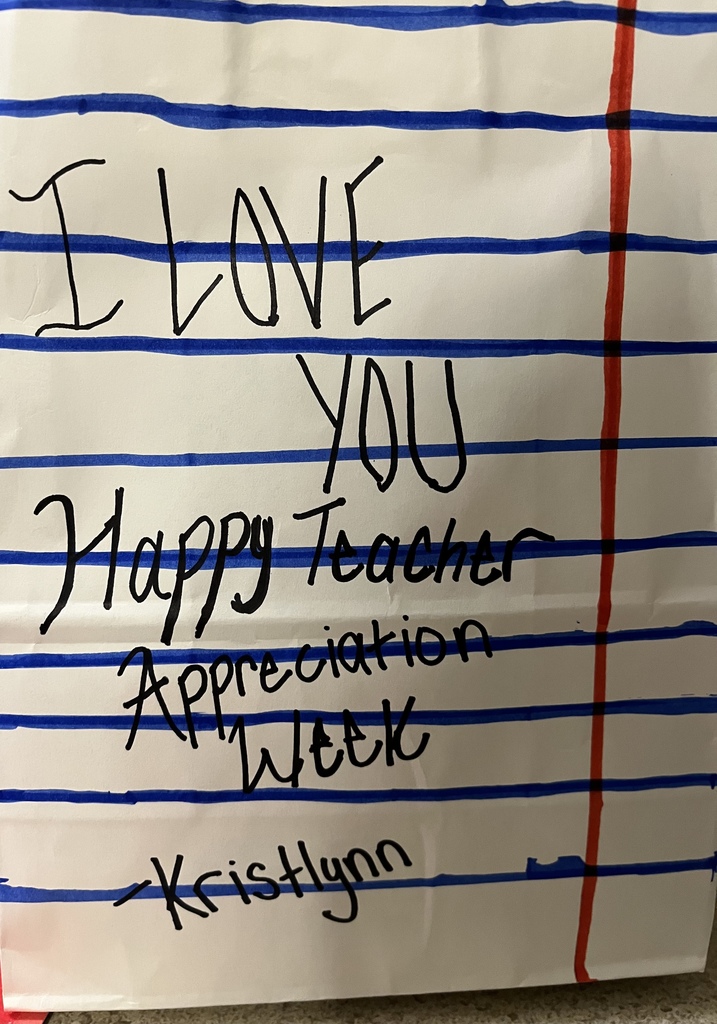 I LOVE
YOU
Happy Teacher
Appreciation
Week
-Kristlynn